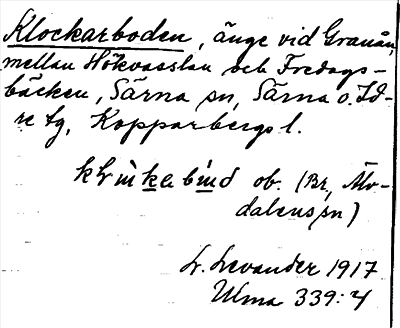 Klockarboden, änge vid Granån,
mellan Hökvasslan och Fredags-
bäcken, Särna sn, Särna o. Id-
re tg, Kopparbergs l.
ob. (Br, Älv-
dalens sn)
L. Levander 1917
Ulma 339:4